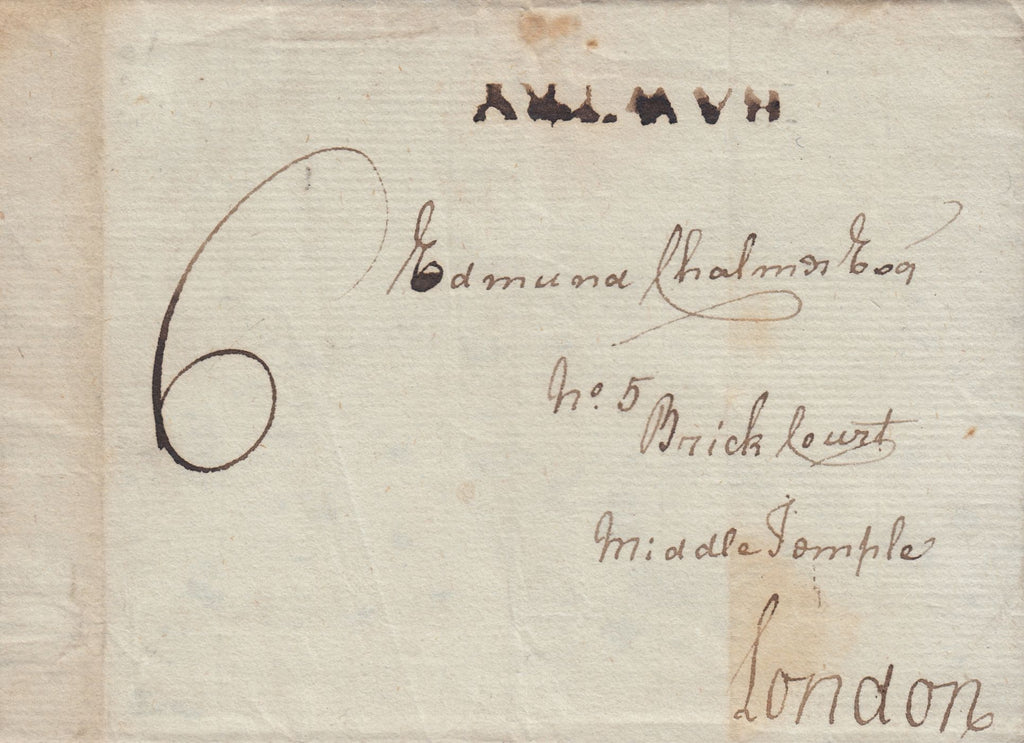 6
Edmund Chalmer Esq
No. 5
Brick Court
Middle Temple
London